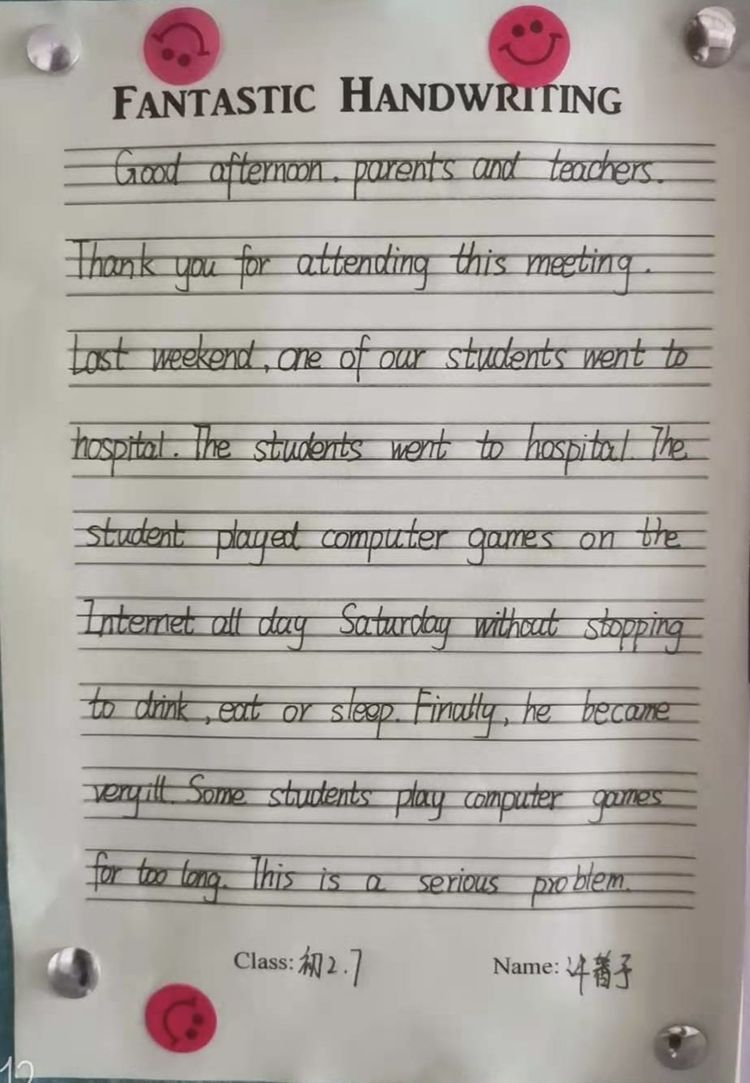 FANTASTIC HANDWRITING
Good afternoon. parents and teachers.
Thank you for attending this meeting.
Last weekend, one of our students went to
hospital. The students went to hospital. The
student played computer games on the
Internet all day Saturday without stopping
to drink, eat or sleep. Finally, he became
very ill. Some students play computer games
for too long. This is a serious problem.
Class: 初2.7 Name: 许
12